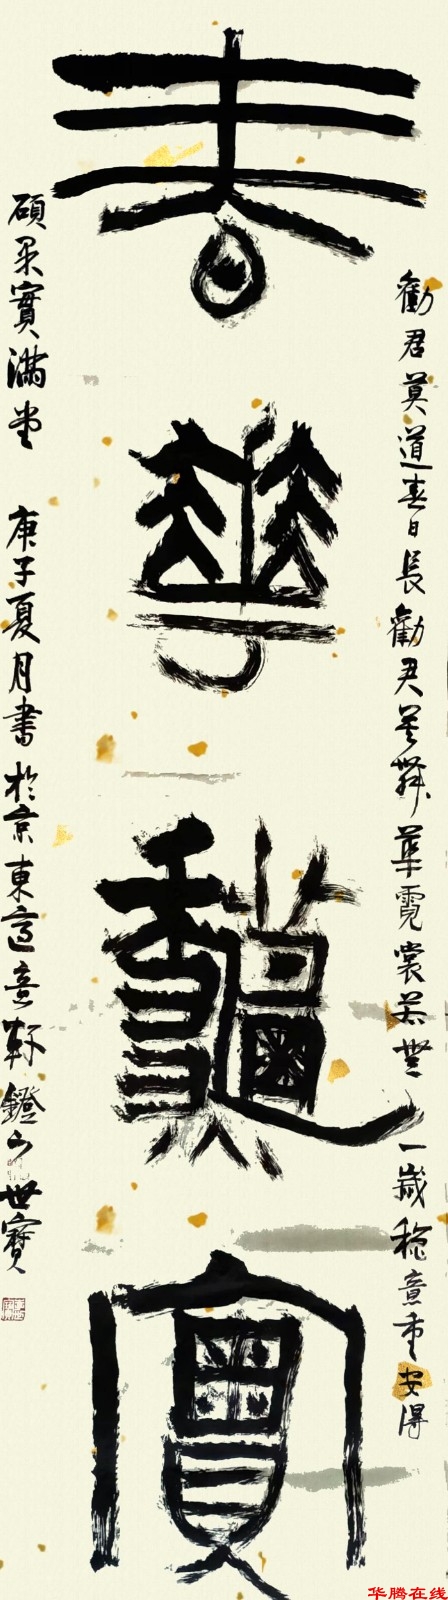 春華龝實
勸君莫道春日長勸君莫舞華霓裳若無一歲意重安得
碩果實滿堂 庚子夏月書於京東適意軒鐙下世寶
华腾在线